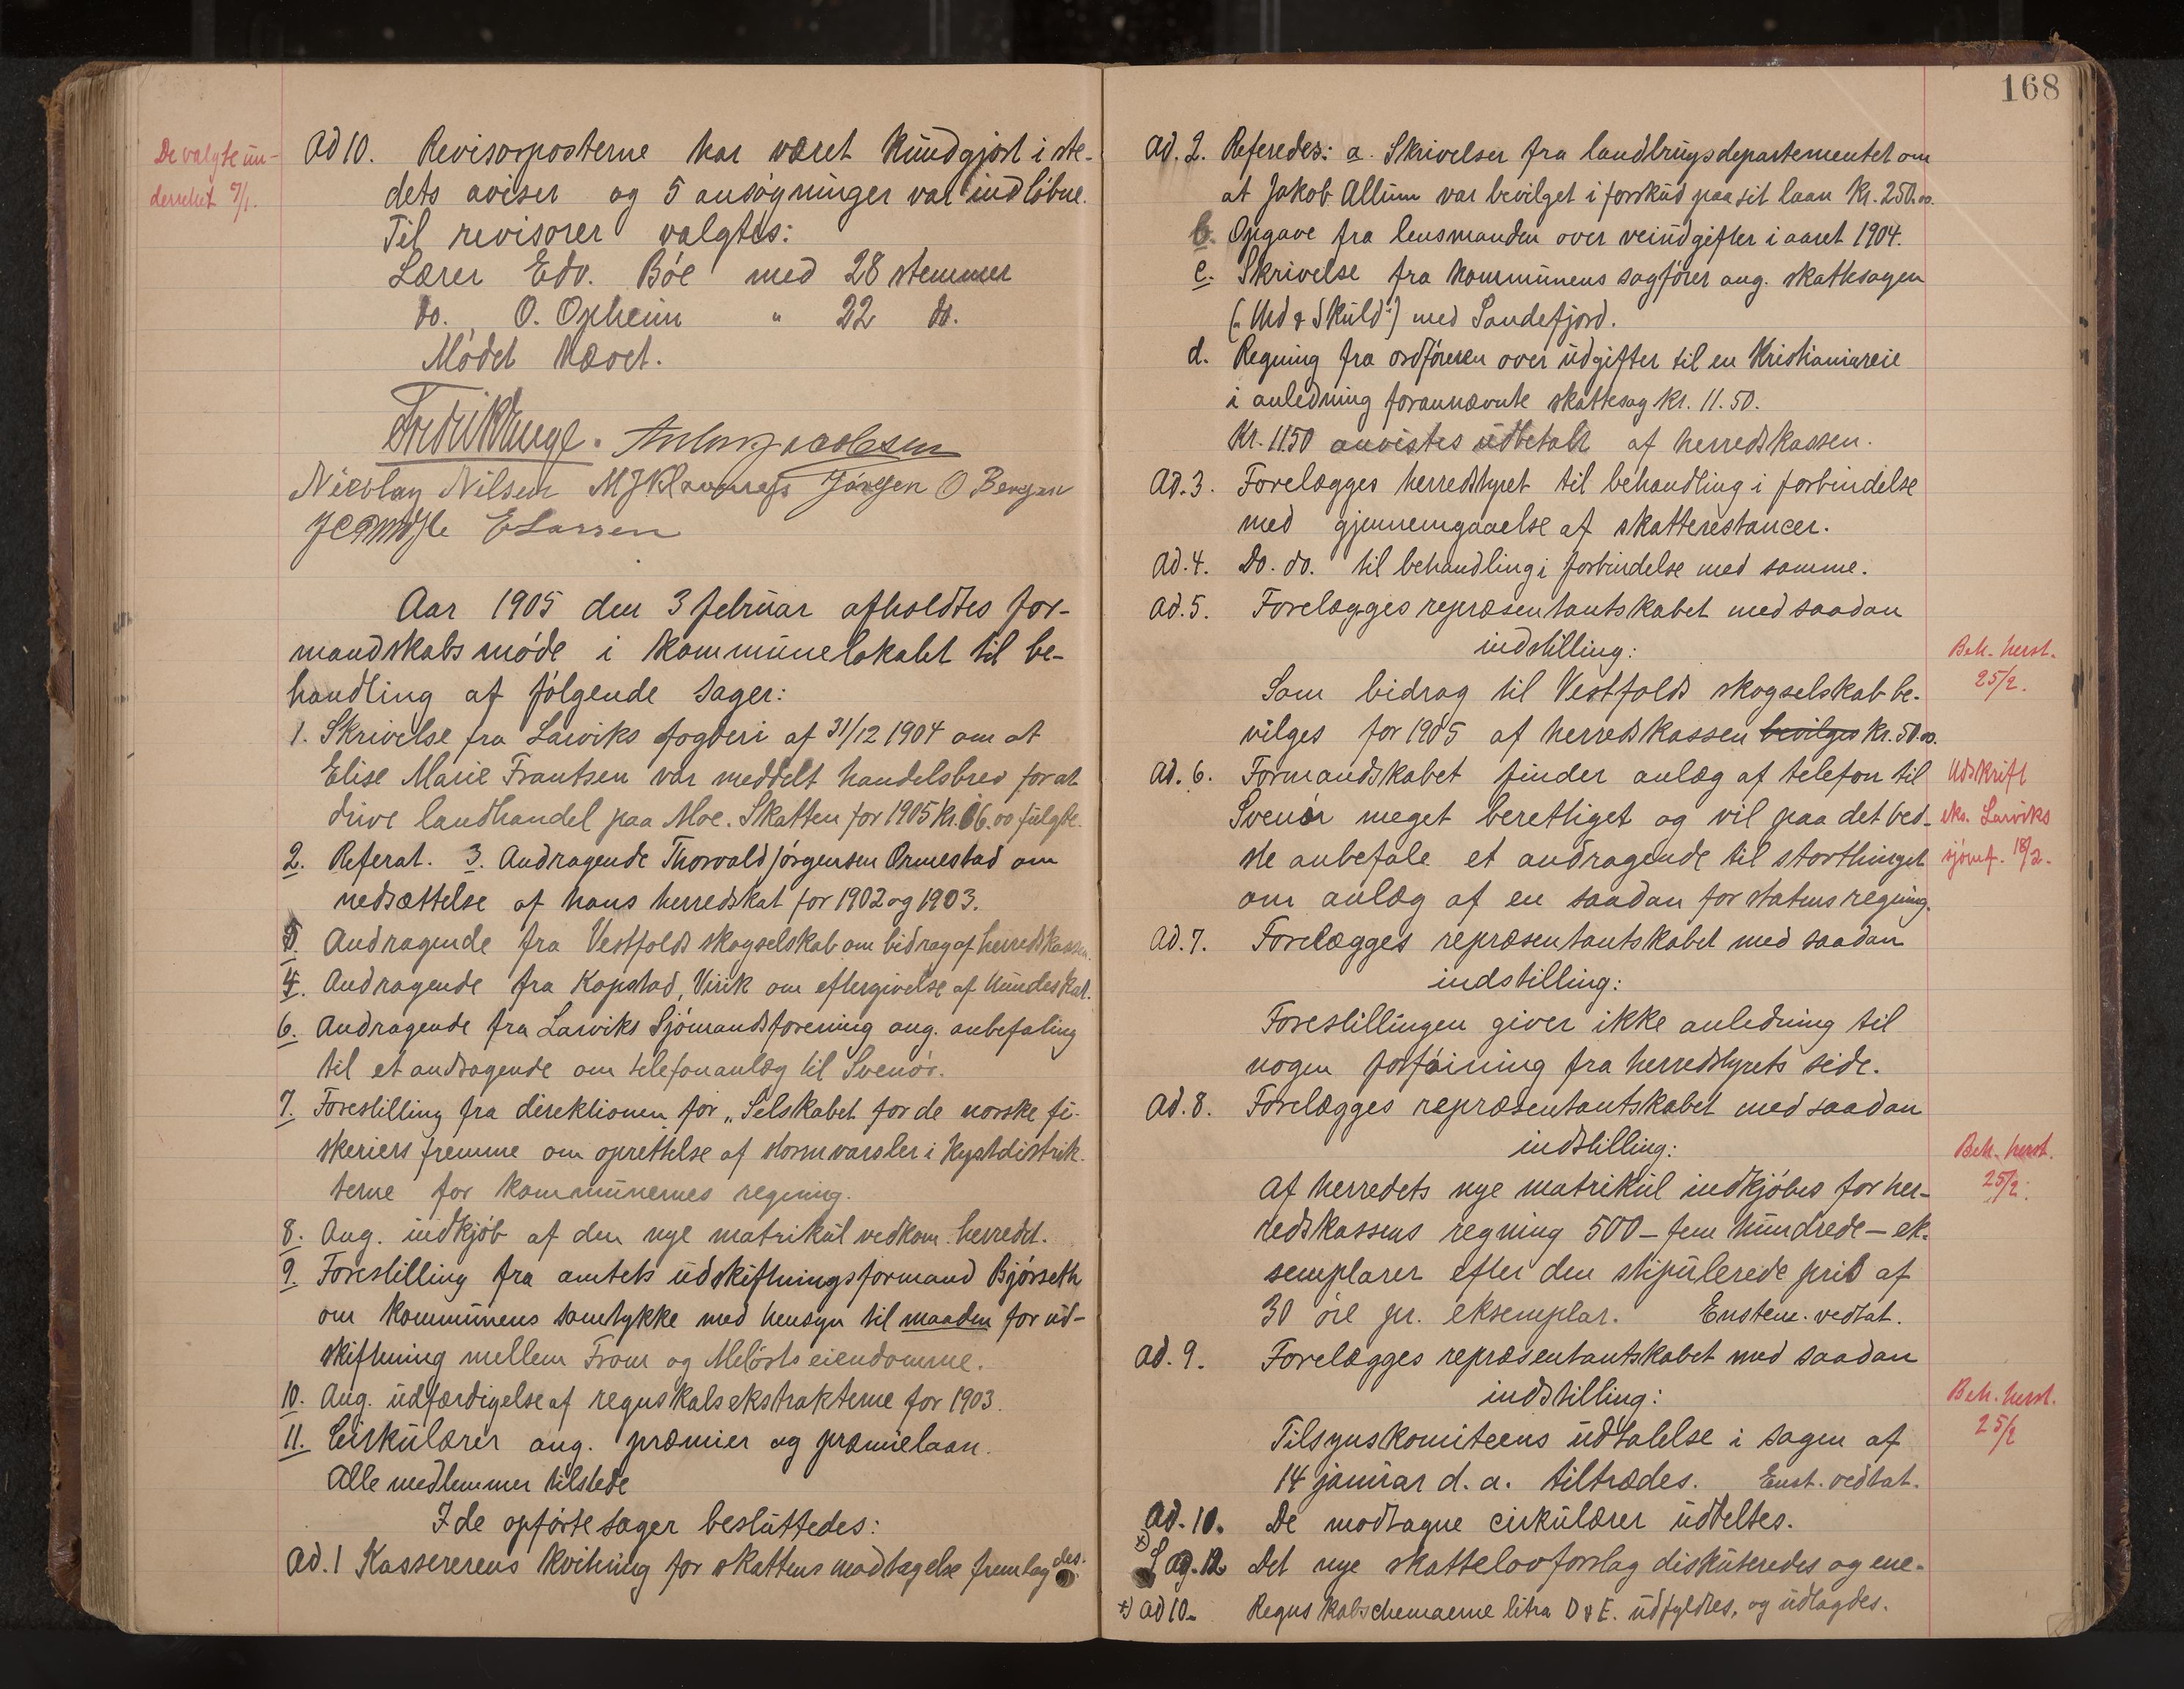 De valgte un-
derrettet 9/1.
Ad 10. Revisorposterne har været kundgjort i ste-
dets aviser og 5 ansøgninger var indløbne.
Til revisorer valgtes:
Lærer Edv. Bøe med 28 stemmer
do. O. Opheim " 22 do.
Mødet hævet.
Nicolay Nilsen Jørgen O Bergan
E Larsen
Aar 1905 den 3 februar afholdtes for-
mandskabsmøde i kommunelokalet til be-
handling af følgende sager:
1. Skrivelse fra Larviks fogderi af 31/12 1904 om at
Elise Marie Frantsen var meddelt handelsbrev for at
drive landhandel paa Moe. Skatten for 1905 kr. 16.00 fulgte.
2. Referat. 3. Andragende Thorvald Jørgensen Ormestad om
nedsættelse af hans herredskat for 1902 og 1903.
5. Andragende fra Vestfolds skogselskab om bidrag af herredskassen.
4. Andragende fra Kopstad, Virik om eftergivelse af hundeskat.
6. Andragende fra Larviks Sjömandsforening ang. anbefaling
til et andragende om telefonanlæg til Svenör.
7. Forestilling fra direktionen for „Selskabet for de norske fi-
skeriers fremme om oprettelse af stormvarsler i kystdistrik-
terne for kommunernes regning.
8. Ang. indkjöb af den nye matrikul vedkom. herredet.
9. Forestilling fra amtets udskiftningsformand Bjørseth
om kommunens samtykke med hensyn til maaden for ud-
skiftning mellem Fram og Melösts eiendomme.
10. Ang. udfærdigelse af regnskabsekstrakterne for 1903.
11. Cirkulærer ang. præmier og præmielaan.
Alle medlemmer tilstede
I de opførte sager besluttedes:
Ad. 1 Kassererens kvitning for skattens modtagelse fremlagdes.
168
Ad. 2. Referedes: a. Skrivelser fra landbrugsdepartementet om
at Jakob Allum var bevilget i forskud paa sit laan kr. 250.00.
b. Opgave fra lensmanden over veiudgifter i aaret 1904.
c. Skrivelse fra kommunens sagfører ang. skattesagen
(„Urd & Skuld") med Sandefjord.
d. Regning fra ordføreren over udgifter til en Kristianiareie
i anledning forannævnte skattesag kr. 11.50.
Kr. 11.50 anvistes udbetalt af herredskassen.
Ad. 3. Forelægges herredstyret til behandling i forbindelse
med gjennemgaaelse af skatterestancer.
Ad. 4. Do. do. til behandling i forbindelse med samme.
Ad. 5. Forelægges repræsentantskabet med saadan
indstilling:
Beh. herst.
25/2.
Som bidrag til Vestfolds skogselskab be-
vilges for 1905 af herredskassen bevilges kr. 50.00.
Ad. 6. Formandskabet finder anlæg af telefon til
Svenör meget berettiget og vil paa det bed-
ste anbefale et andragende til storthinget
om anlæg af en saadan for statens regning.
Udskrift
eks. Larviks
sjömf. 18/2.
Ad. 7. Forelægges repræsentantskabet med saadan
indstilling:
Forestillingen giver ikke anledning til
nogen forføining fra herredstyrets side.
Ad. 8. Forelægges repræsentantskabet med saadan
indstilling:
Beh. herst.
25/2.
Af herredets nye matrikul indkjöbes for her-
redskassens regning 500 – fem hundrede – ek-
semplarer efter den stipulerede pris af
30 öre pr. eksemplar. Enstem. vedtat.
Ad. 9. Forelægges repræsentantskabet med saadan
indstilling:
Beh. herst.
25/2
Tilsynskomiteens udtalelse i sagen af
14 januar d. a. tiltrædes. Enst. vedtat.
Ad. 10. De modtagne cirkulærer uddeltes.
Sag. 12 Det nye skattelovforslag diskuteredes og ene-
x) Ad 10. Regnskabschemaerne litra D & E. udfyldtes, og udlagdes.